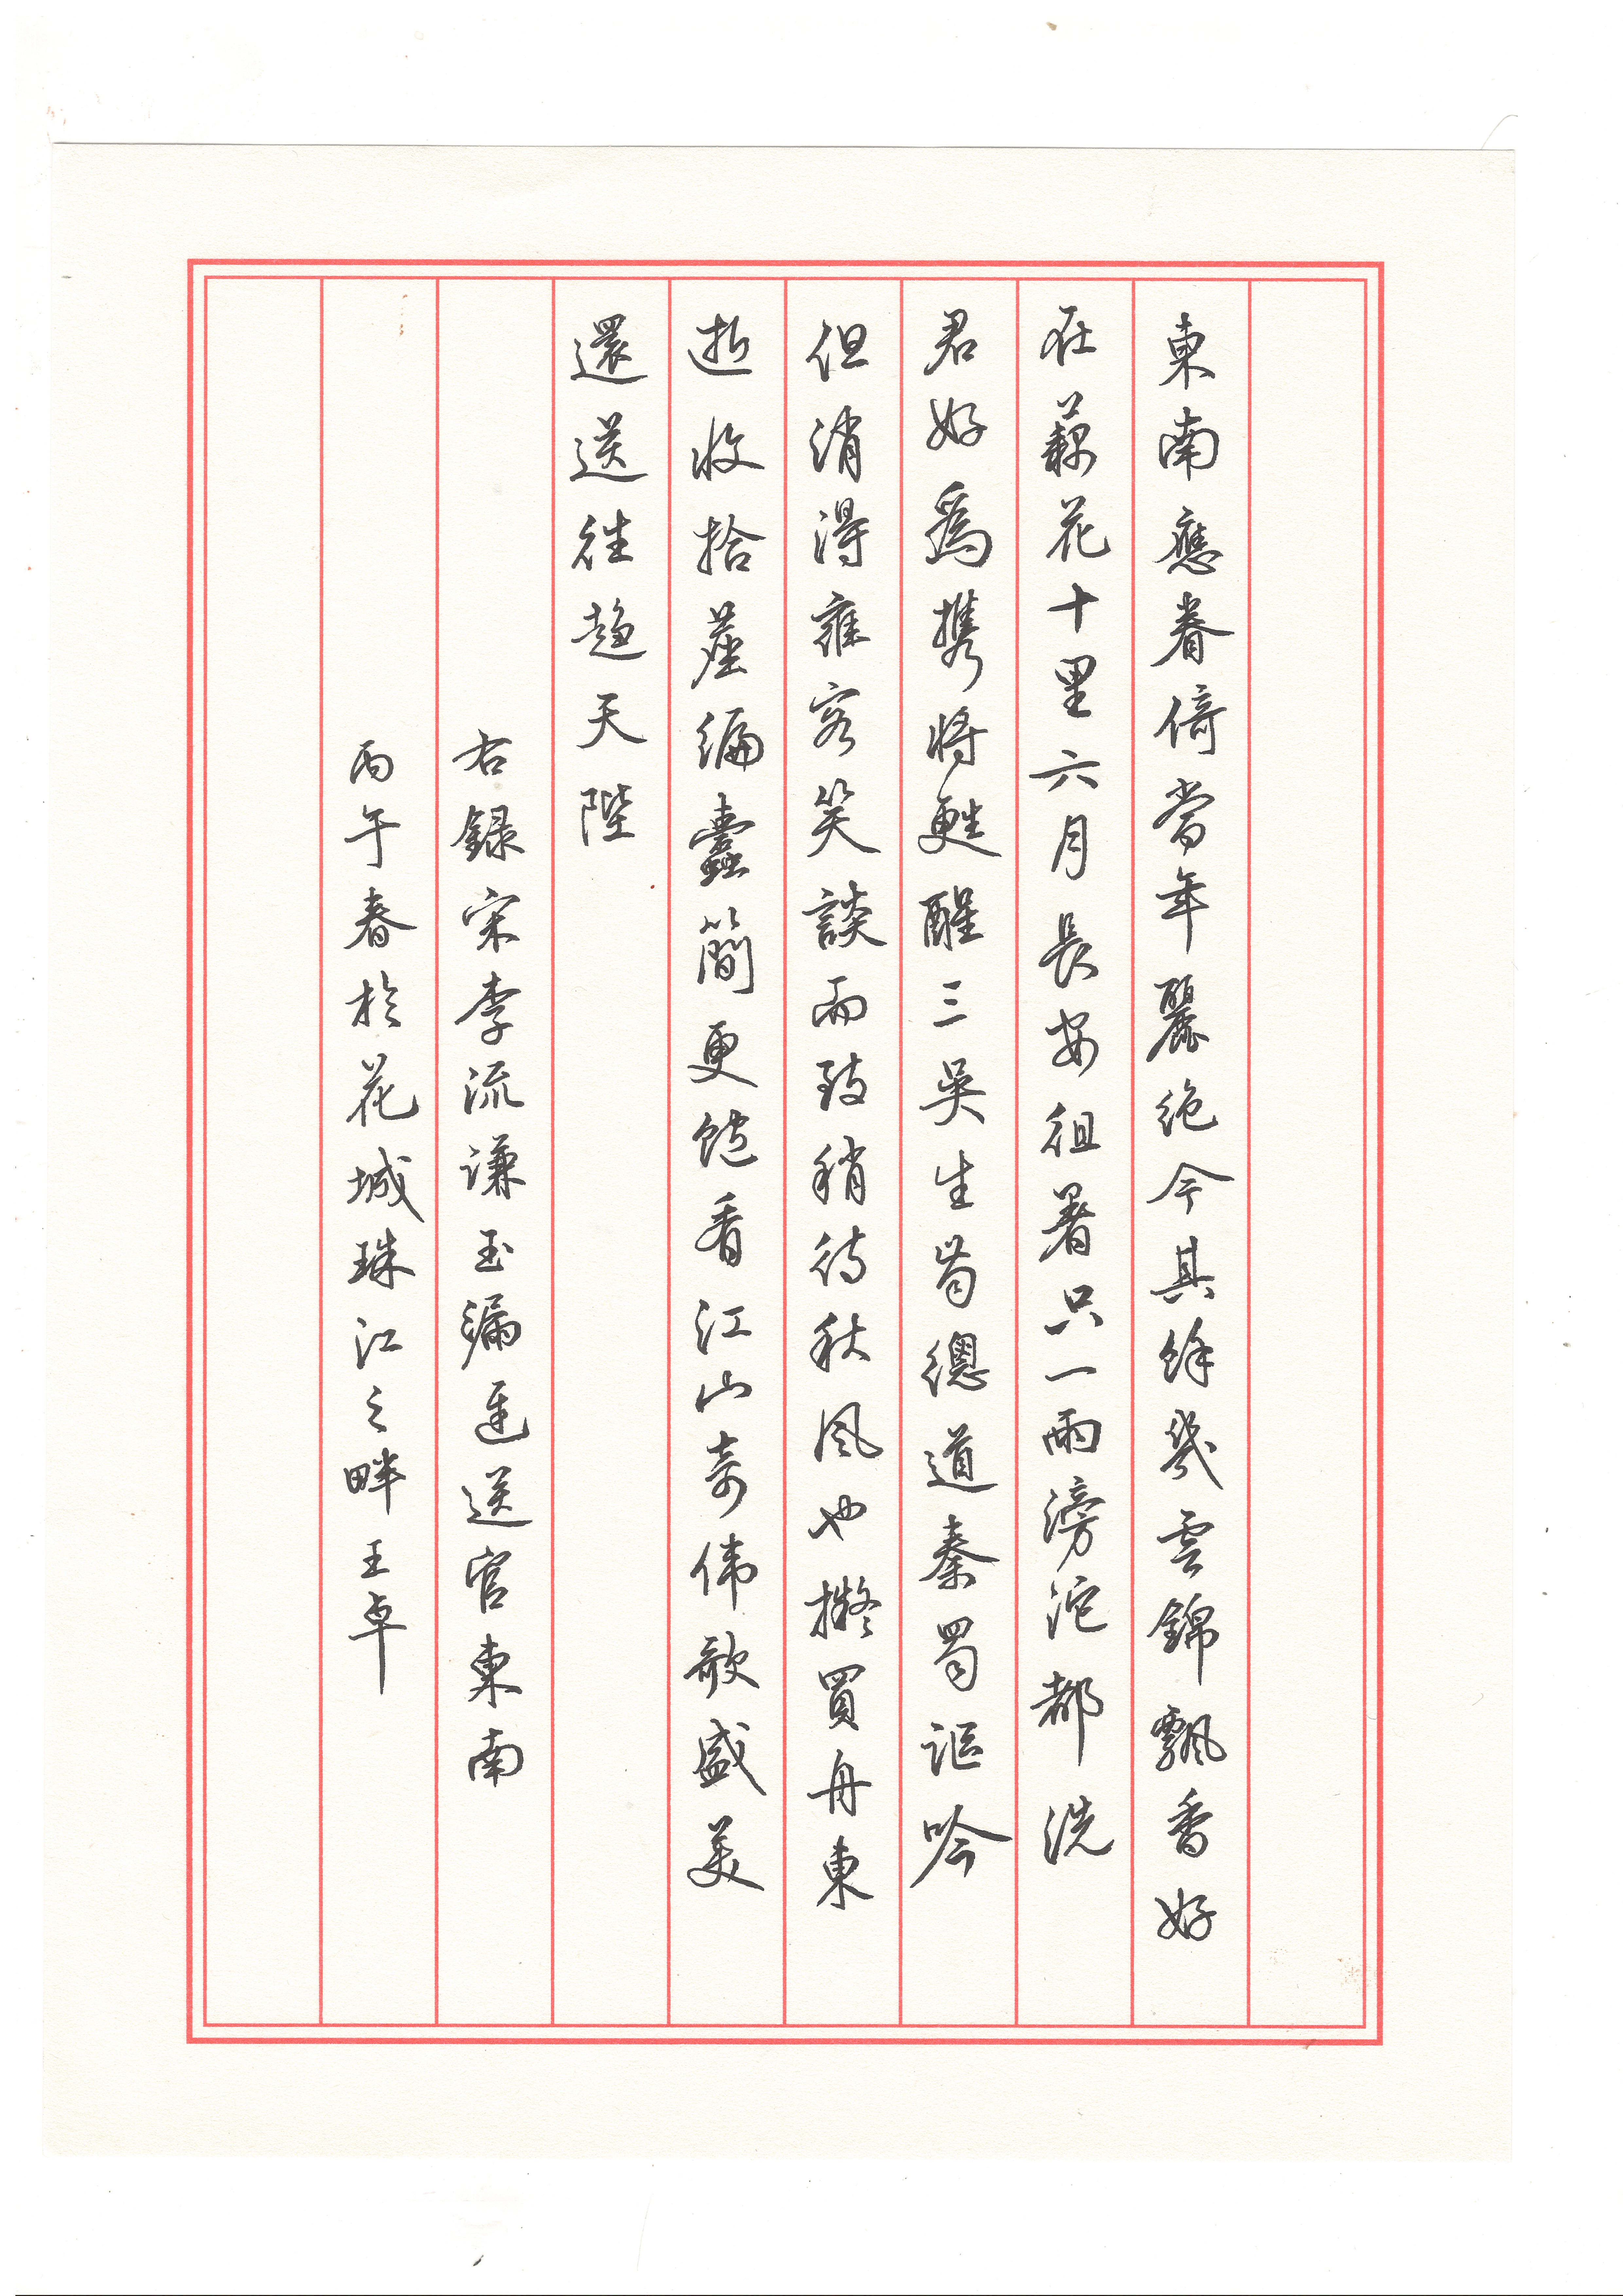 東南應眷倚當年麗絕今其餘幾雲錦飄香好
在藕花十里六月長安徂暑只一雨滂沱都洗
君好爲攜將甦醒三吳生總道秦蜀謳吟
但消得雍容笑談而致稍待秋風也擬買舟東
逝收拾塵編蠹簡更飽看江山奇偉歌盛美
還送往趨天陛
右録宋李流謙玉漏遲送官東南
丙午春於花城珠江之畔王卓